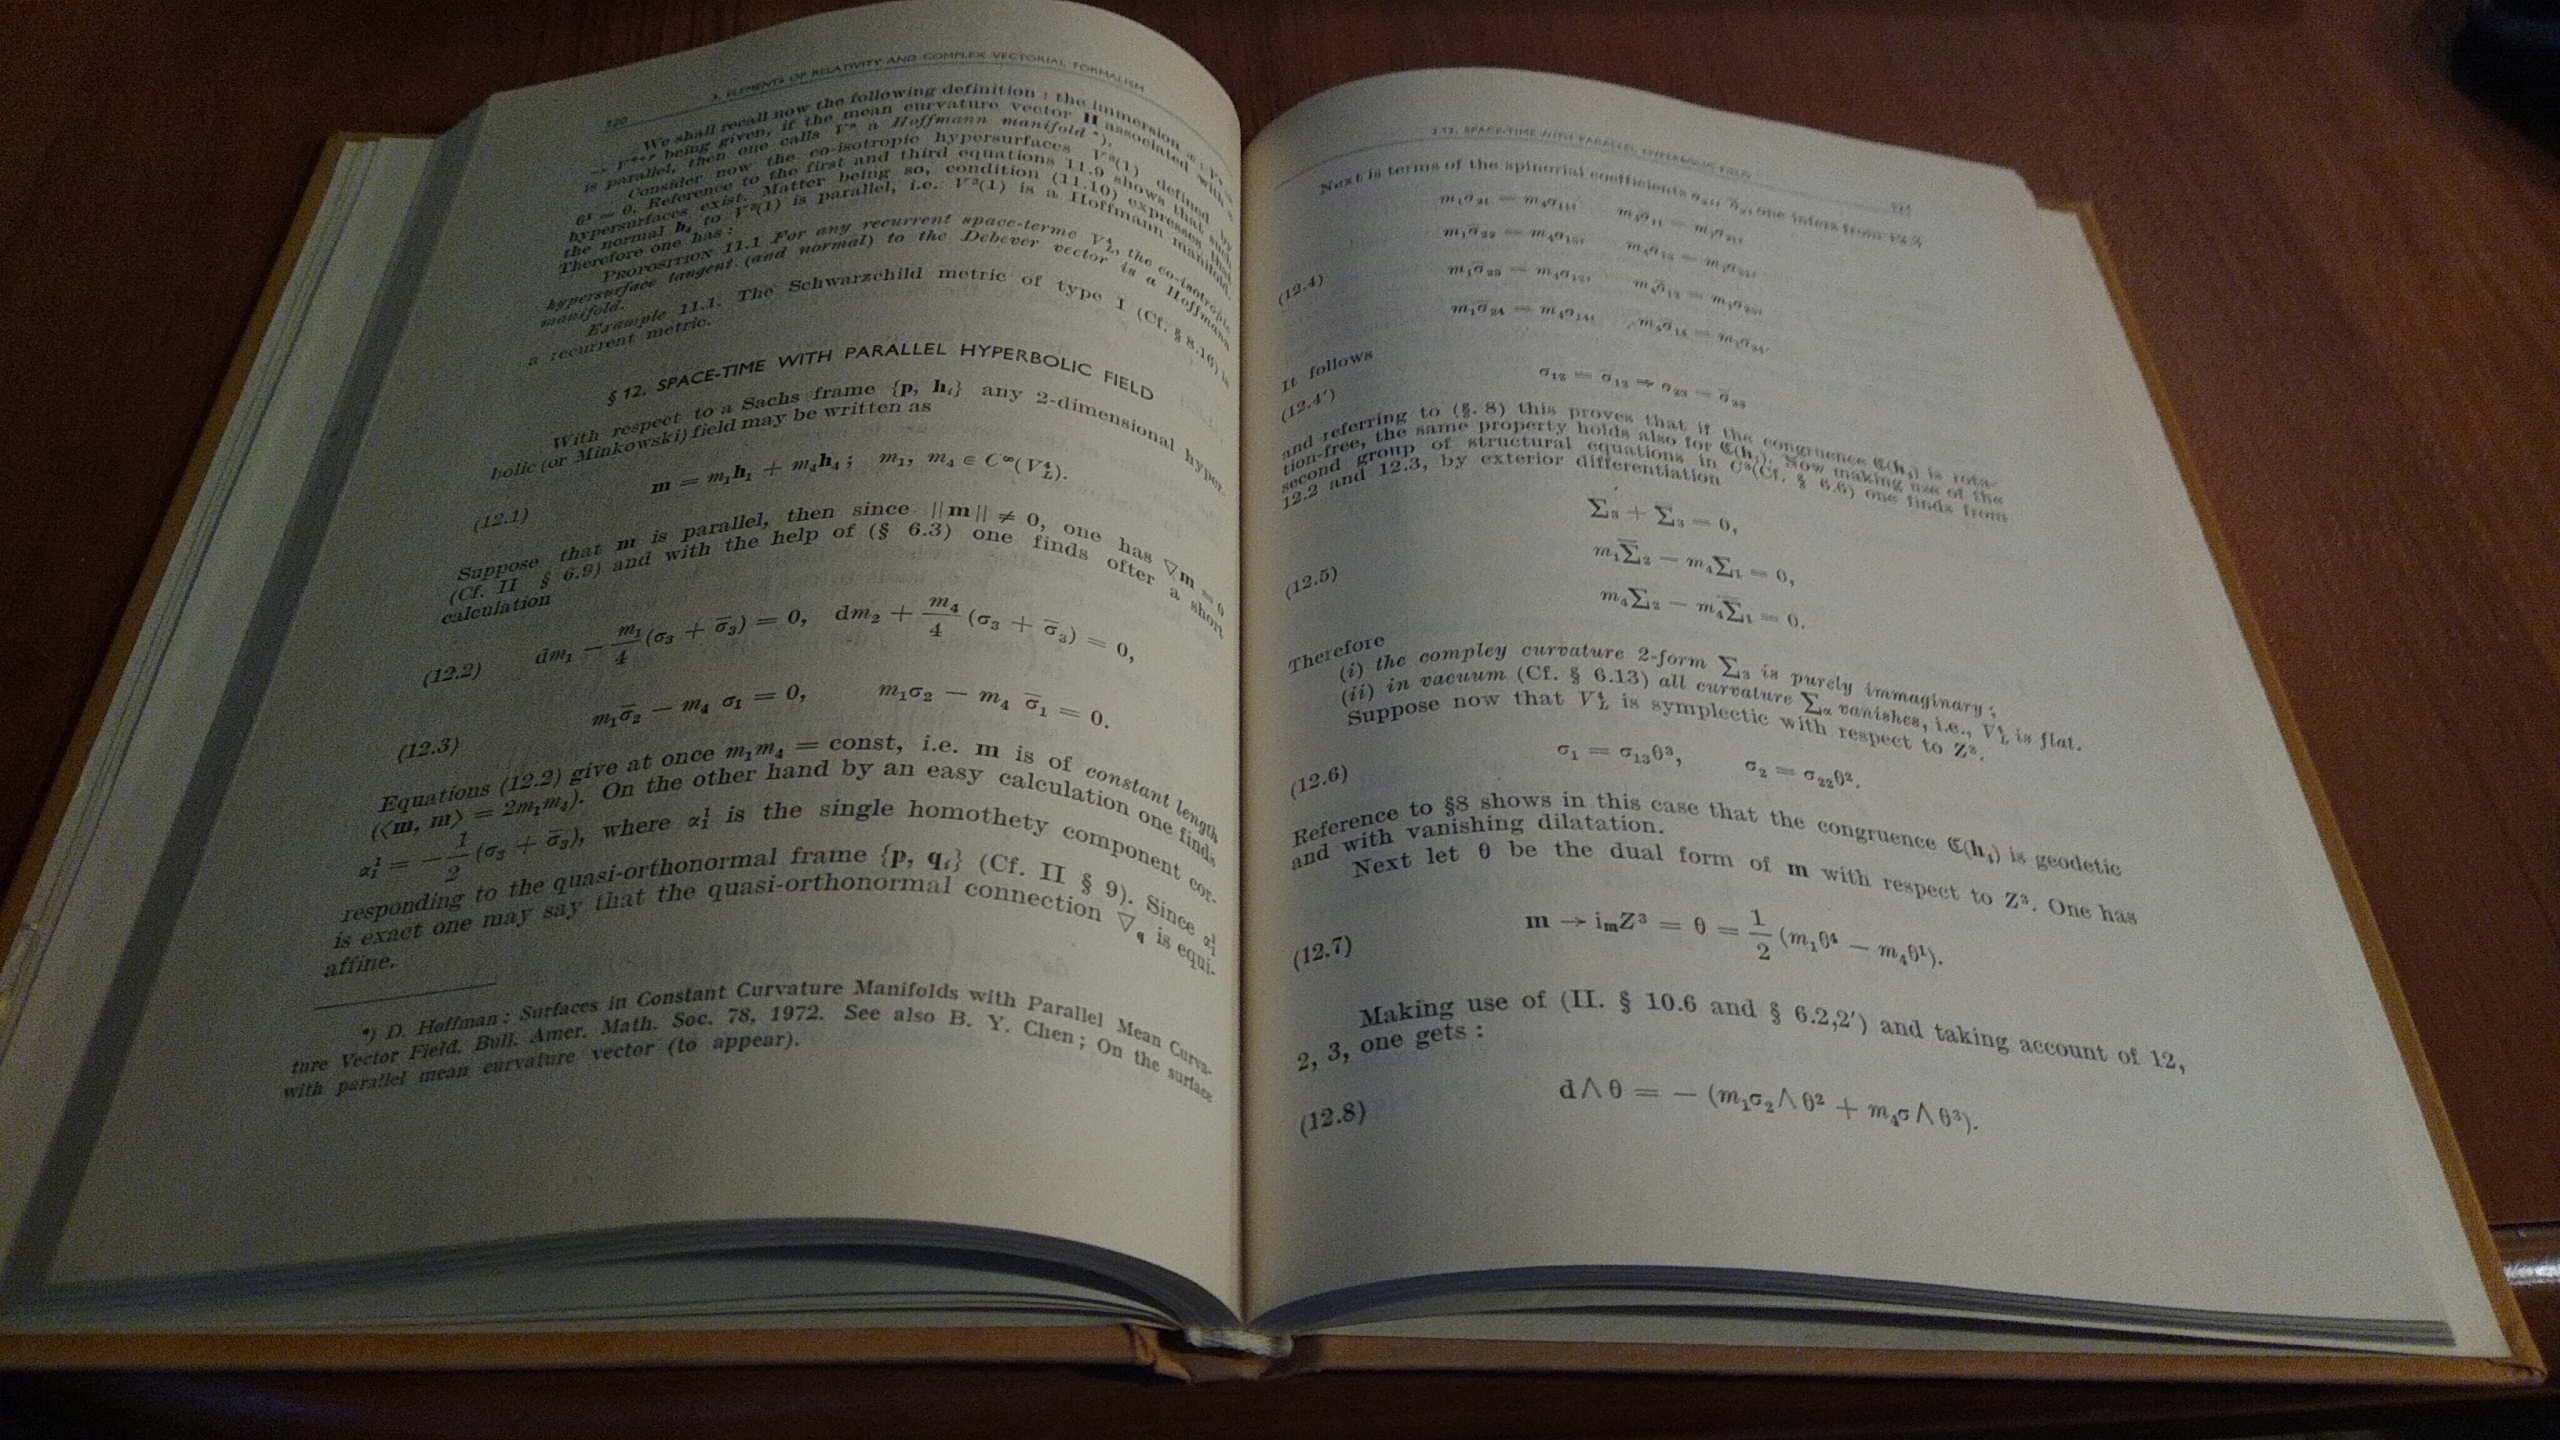 320
3. ELEMENTS OF RELATIVITY AND COMPLEX VECTORIAL FORMALISM
We shall recall now the following definition : the immersion
being given, if the mean curvature vector H associated with
is parallel, then one calls a Hoffmann manifold *).
Consider now the co-isotropic hypersurfaces V³(1) defined by
θ¹ = 0. Reference to the first and third equations 11.9 shows that such
hypersurfaces exist. Matter being so, condition (11.10) expresses that
the normal h₄ to V³(1) is parallel, i.e. V³(1) is a Hoffmann manifold.
Therefore one has :
PROPOSITION 11.1 For any recurrent space-terme V⁴_L, the co-isotropic
hypersurface tangent (and normal) to the Debever vector is a Hoffmann
manifold.
Example 11.1. The Schwarzchild metric of type 1 (Cf. § 8.16) is
a recurrent metric.
§ 12. SPACE-TIME WITH PARALLEL HYPERBOLIC FIELD
With respect to a Sachs frame {p, hᵢ} any 2-dimensional hyper-
bolic (or Minkowski) field may be written as
(12.1) m = m₁h₁ + m₄h₄ ; m₁, m₄ ∈ C^∞(V⁴_L).
Suppose that m is parallel, then since ||m|| ≠ 0, one has ∇m = 0
(Cf. II § 6.9) and with the help of (§ 6.3) one finds ofter a short
calculation
(12.2) dm₁ − m₁/4 (σ₃ + σ̄₃) = 0, dm₂ + m₄/4 (σ₃ + σ̄₃) = 0,
(12.3) m₁σ̄₂ − m₄ σ₁ = 0, m₁σ₂ − m₄ σ̄₁ = 0.
Equations (12.2) give at once m₁m₄ = const, i.e. m is of constant length
(⟨m, m⟩ = 2m₁m₄). On the other hand by an easy calculation one finds
α¹₁ = − 1/2 (σ₃ + σ̄₃), where α¹₁ is the single homothety component cor-
responding to the quasi-orthonormal frame {p, qᵢ} (Cf. II § 9). Since α¹₁
is exact one may say that the quasi-orthonormal connection ∇_q is equi-
affine.
*) D. Hoffman : Surfaces in Constant Curvature Manifolds with Parallel Mean Curva-
ture Vector Field. Bull. Amer. Math. Soc. 78, 1972. See also B. Y. Chen ; On the surface
with parallel mean curvature vector (to appear).
3.12. SPACE-TIME WITH PARALLEL HYPERBOLIC FIELD
Next is terms of the spinorial coefficients one infers from
(12.4)
It follows
(12.4′) σ₁₂ = σ̄₁₃ → σ₂₃ = σ̄₂₃
and referring to (§. 8) this proves that if the congruence ℭ(h₁) is rota-
tion-free, the same property holds also for Now making use of the
second group of structural equations in C³(Cf. § 6.6) one finds from
12.2 and 12.3, by exterior differentiation
Σ₃ + Σ̄₃ = 0,
(12.5) m₁Σ̄₂ − m₄Σ₁ = 0,
m₄Σ₂ − m₄Σ̄₁ = 0.
Therefore
(i) the compley curvature 2-form Σ₃ is purely immaginary ;
(ii) in vacuum (Cf. § 6.13) all curvature Σ_α vanishes, i.e., V⁴_L is flat.
Suppose now that V⁴_L is symplectic with respect to Z³.
(12.6) σ₁ = σ₁₃θ³, σ₂ = σ₂₂θ².
Reference to §8 shows in this case that the congruence ℭ(h₁) is geodetic
and with vanishing dilatation.
Next let θ be the dual form of m with respect to Z³. One has
(12.7) m → i_m Z³ = θ = 1/2 (m₁θ⁴ − m₄θ¹).
Making use of (II. § 10.6 and § 6.2,2′) and taking account of 12,
2, 3, one gets :
(12.8) d∧θ = − (m₁σ₂∧θ² + m₄σ∧θ³).